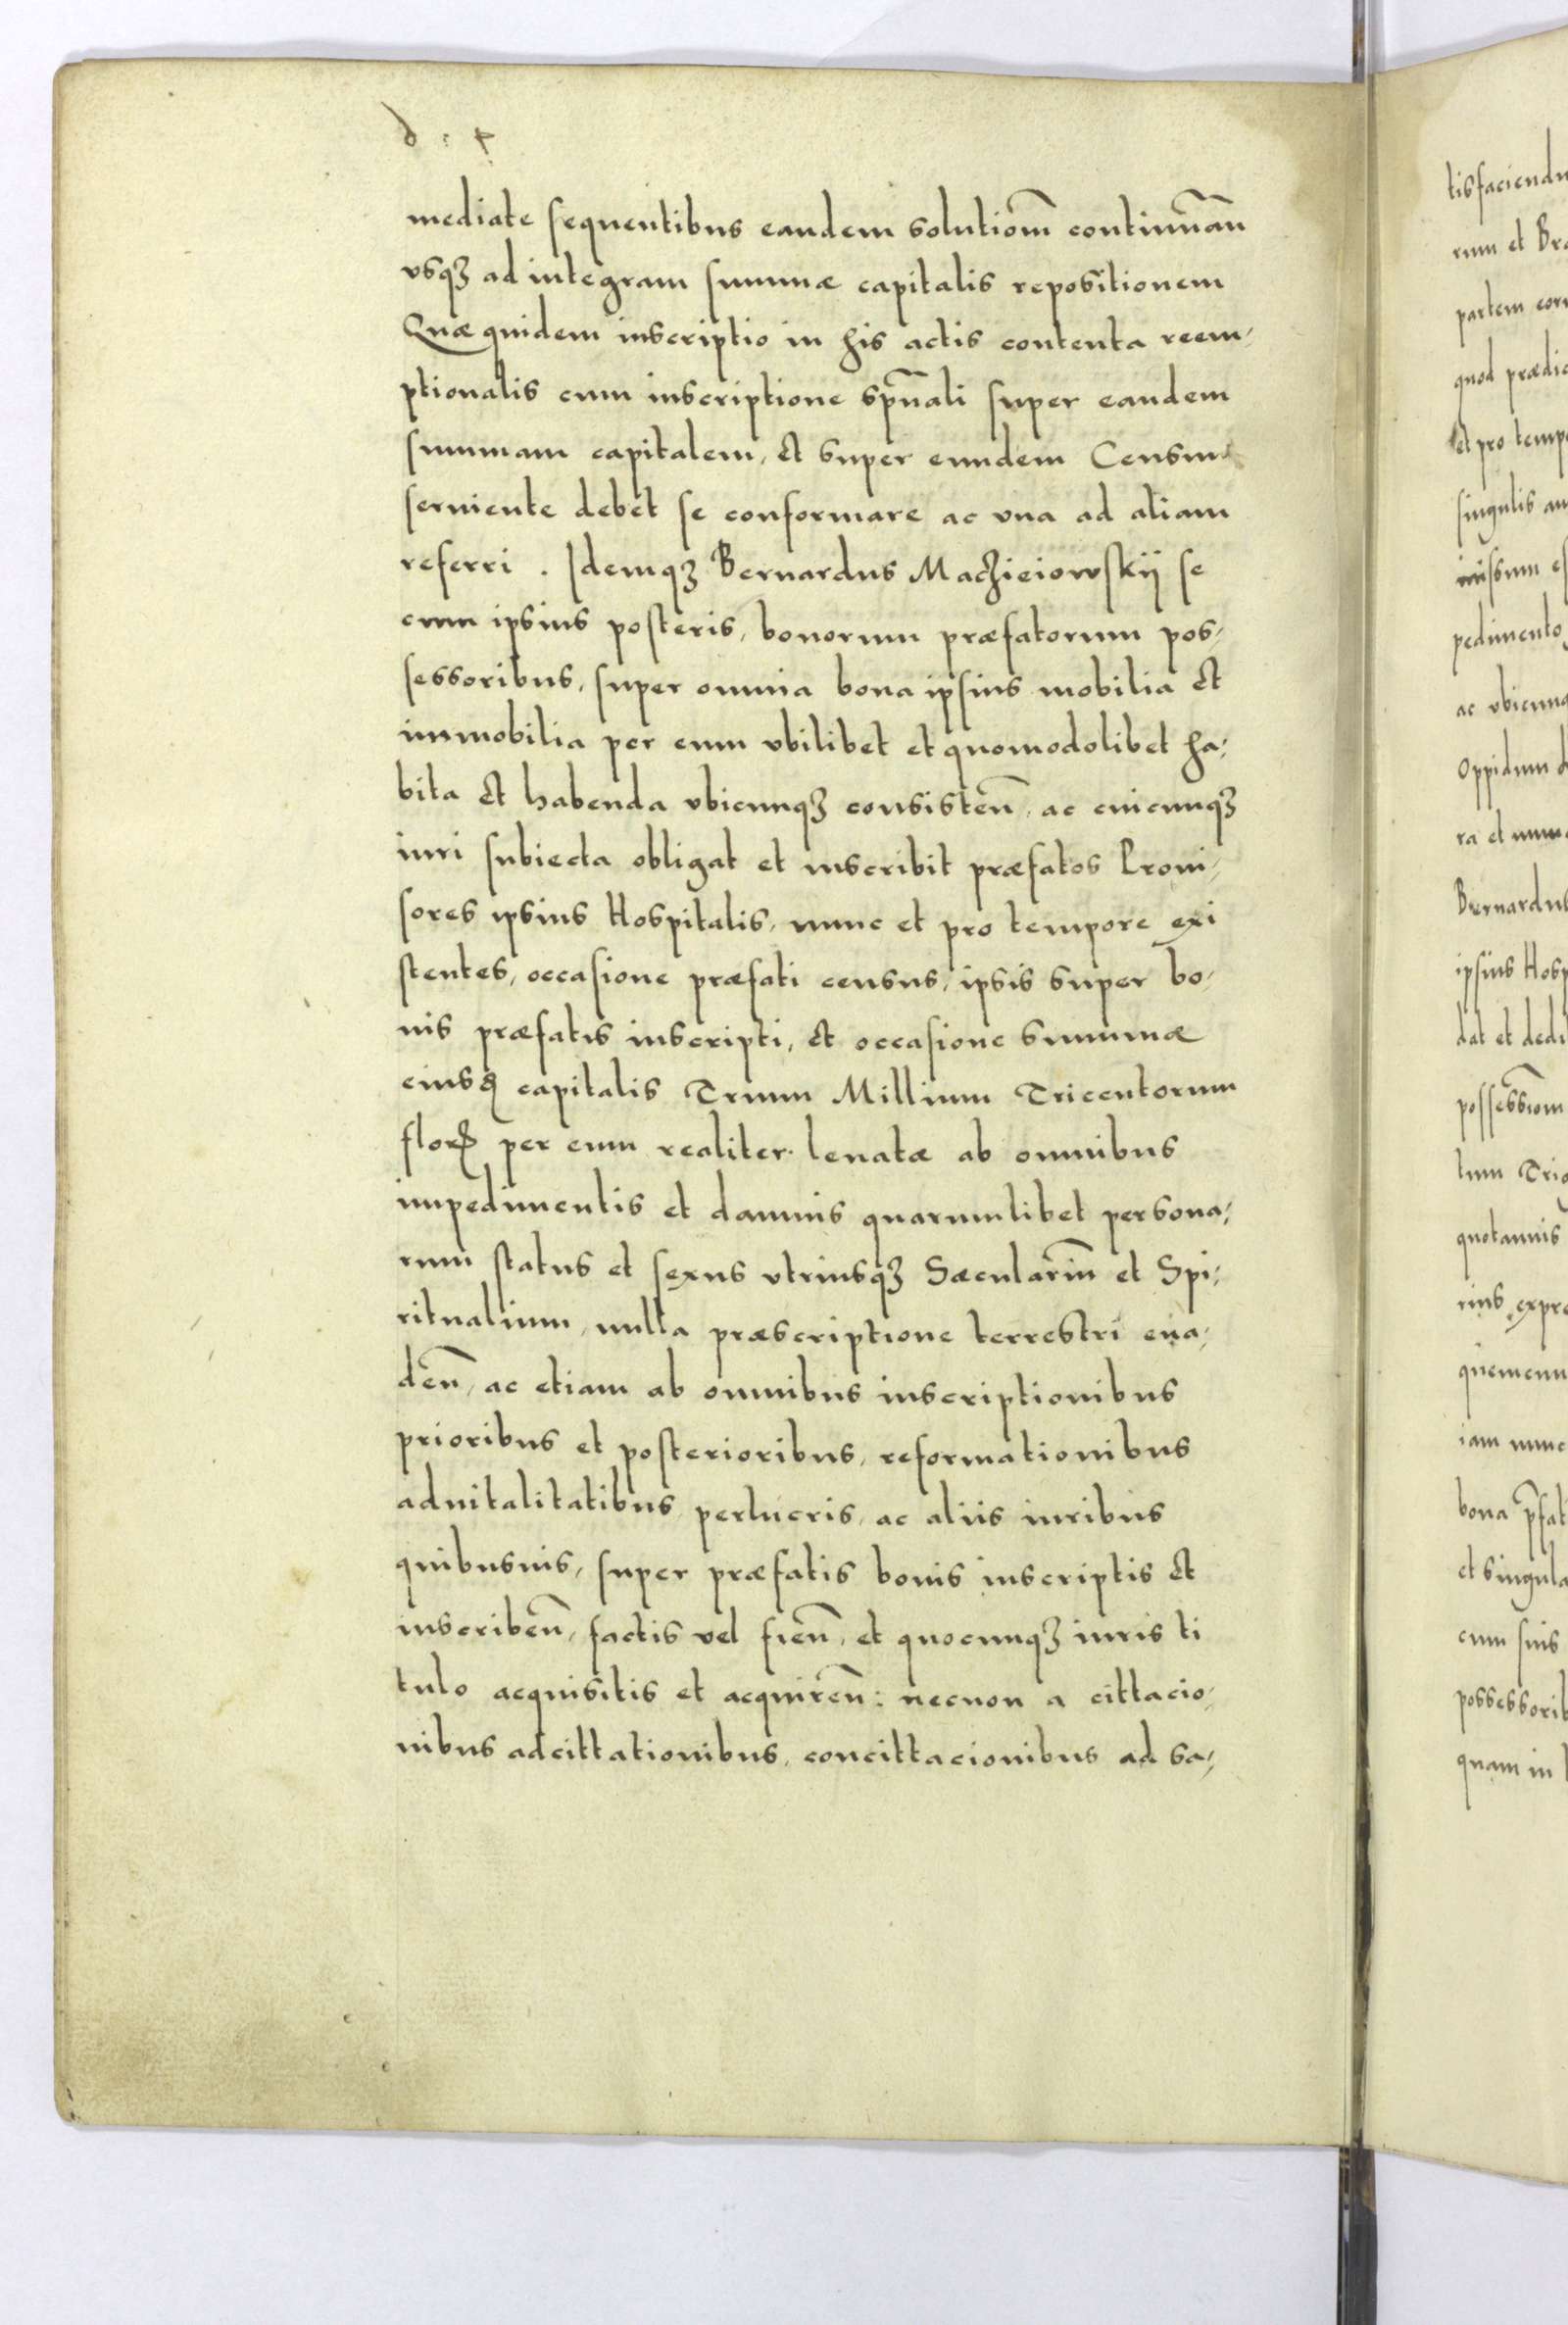 mediate sequentibus eandem solutiom̃ continuãn
vsqꝫ ad integram summæ capitalis repositionem
Quæ quidem inscriptio in his actis contenta reem-
ptionalis cum inscriptione spũali super eandem
summam capitalem, et super eundem Censum
seruiente debet se conformare ac vna ad aliam
referri. Idemqꝫ Bernardus Maczieiowskÿ se
cum ipsius posteris, bonorum præfatorum pos-
sessoribus, super omnia bona ipsius mobilia et
immobilia per eum vbilibet et quomodolibet ha-
bita et habenda vbicunqꝫ consisteñ, ac cuicunqꝫ
iuri subiecta obligat et inscribit præfatos Proui-
sores ipsius Hospitalis, nunc et pro tempore exi
stentes, occasione præfati census, ipsis super bo-
nis præfatis inscripti, et occasione summæ
eiusꝺ capitalis Trium Millium Tricentorum
floꝝ per eum realiter leuatæ ab omnibus
impedimentis et damnis quarumlibet persona-
rum status et sexus vtriusqꝫ Sæculariũ et Spi-
ritualium, nulla præscriptione terrestri eua-
deñ, ac etiam ab omnibus inscriptionibus
prioribus et posterioribus, reformationibus
aduitalitatibus perlucris, ac aliis iuribus
quibusuis, super præfatis bonis inscriptis et
inscribeñ, factis vel fieñ, et quocunqꝫ iuris ti
tulo acquisitis et acquireñ: necnon a cittacio-
nibus adcittationibus, concittacionibus ad sa-
tisfaciendu
rum et Bra
partem
quod prædic
et pro temp
singulis an
missum
pedimento
ac vbicunq
Oppidum
ra et
Bernardus
ipsius Hosp
dat et dedi
possessiom̃
tum
quotannis
rius expre
iam nunc
bona
et singula
cum suis
possessorib
quam in